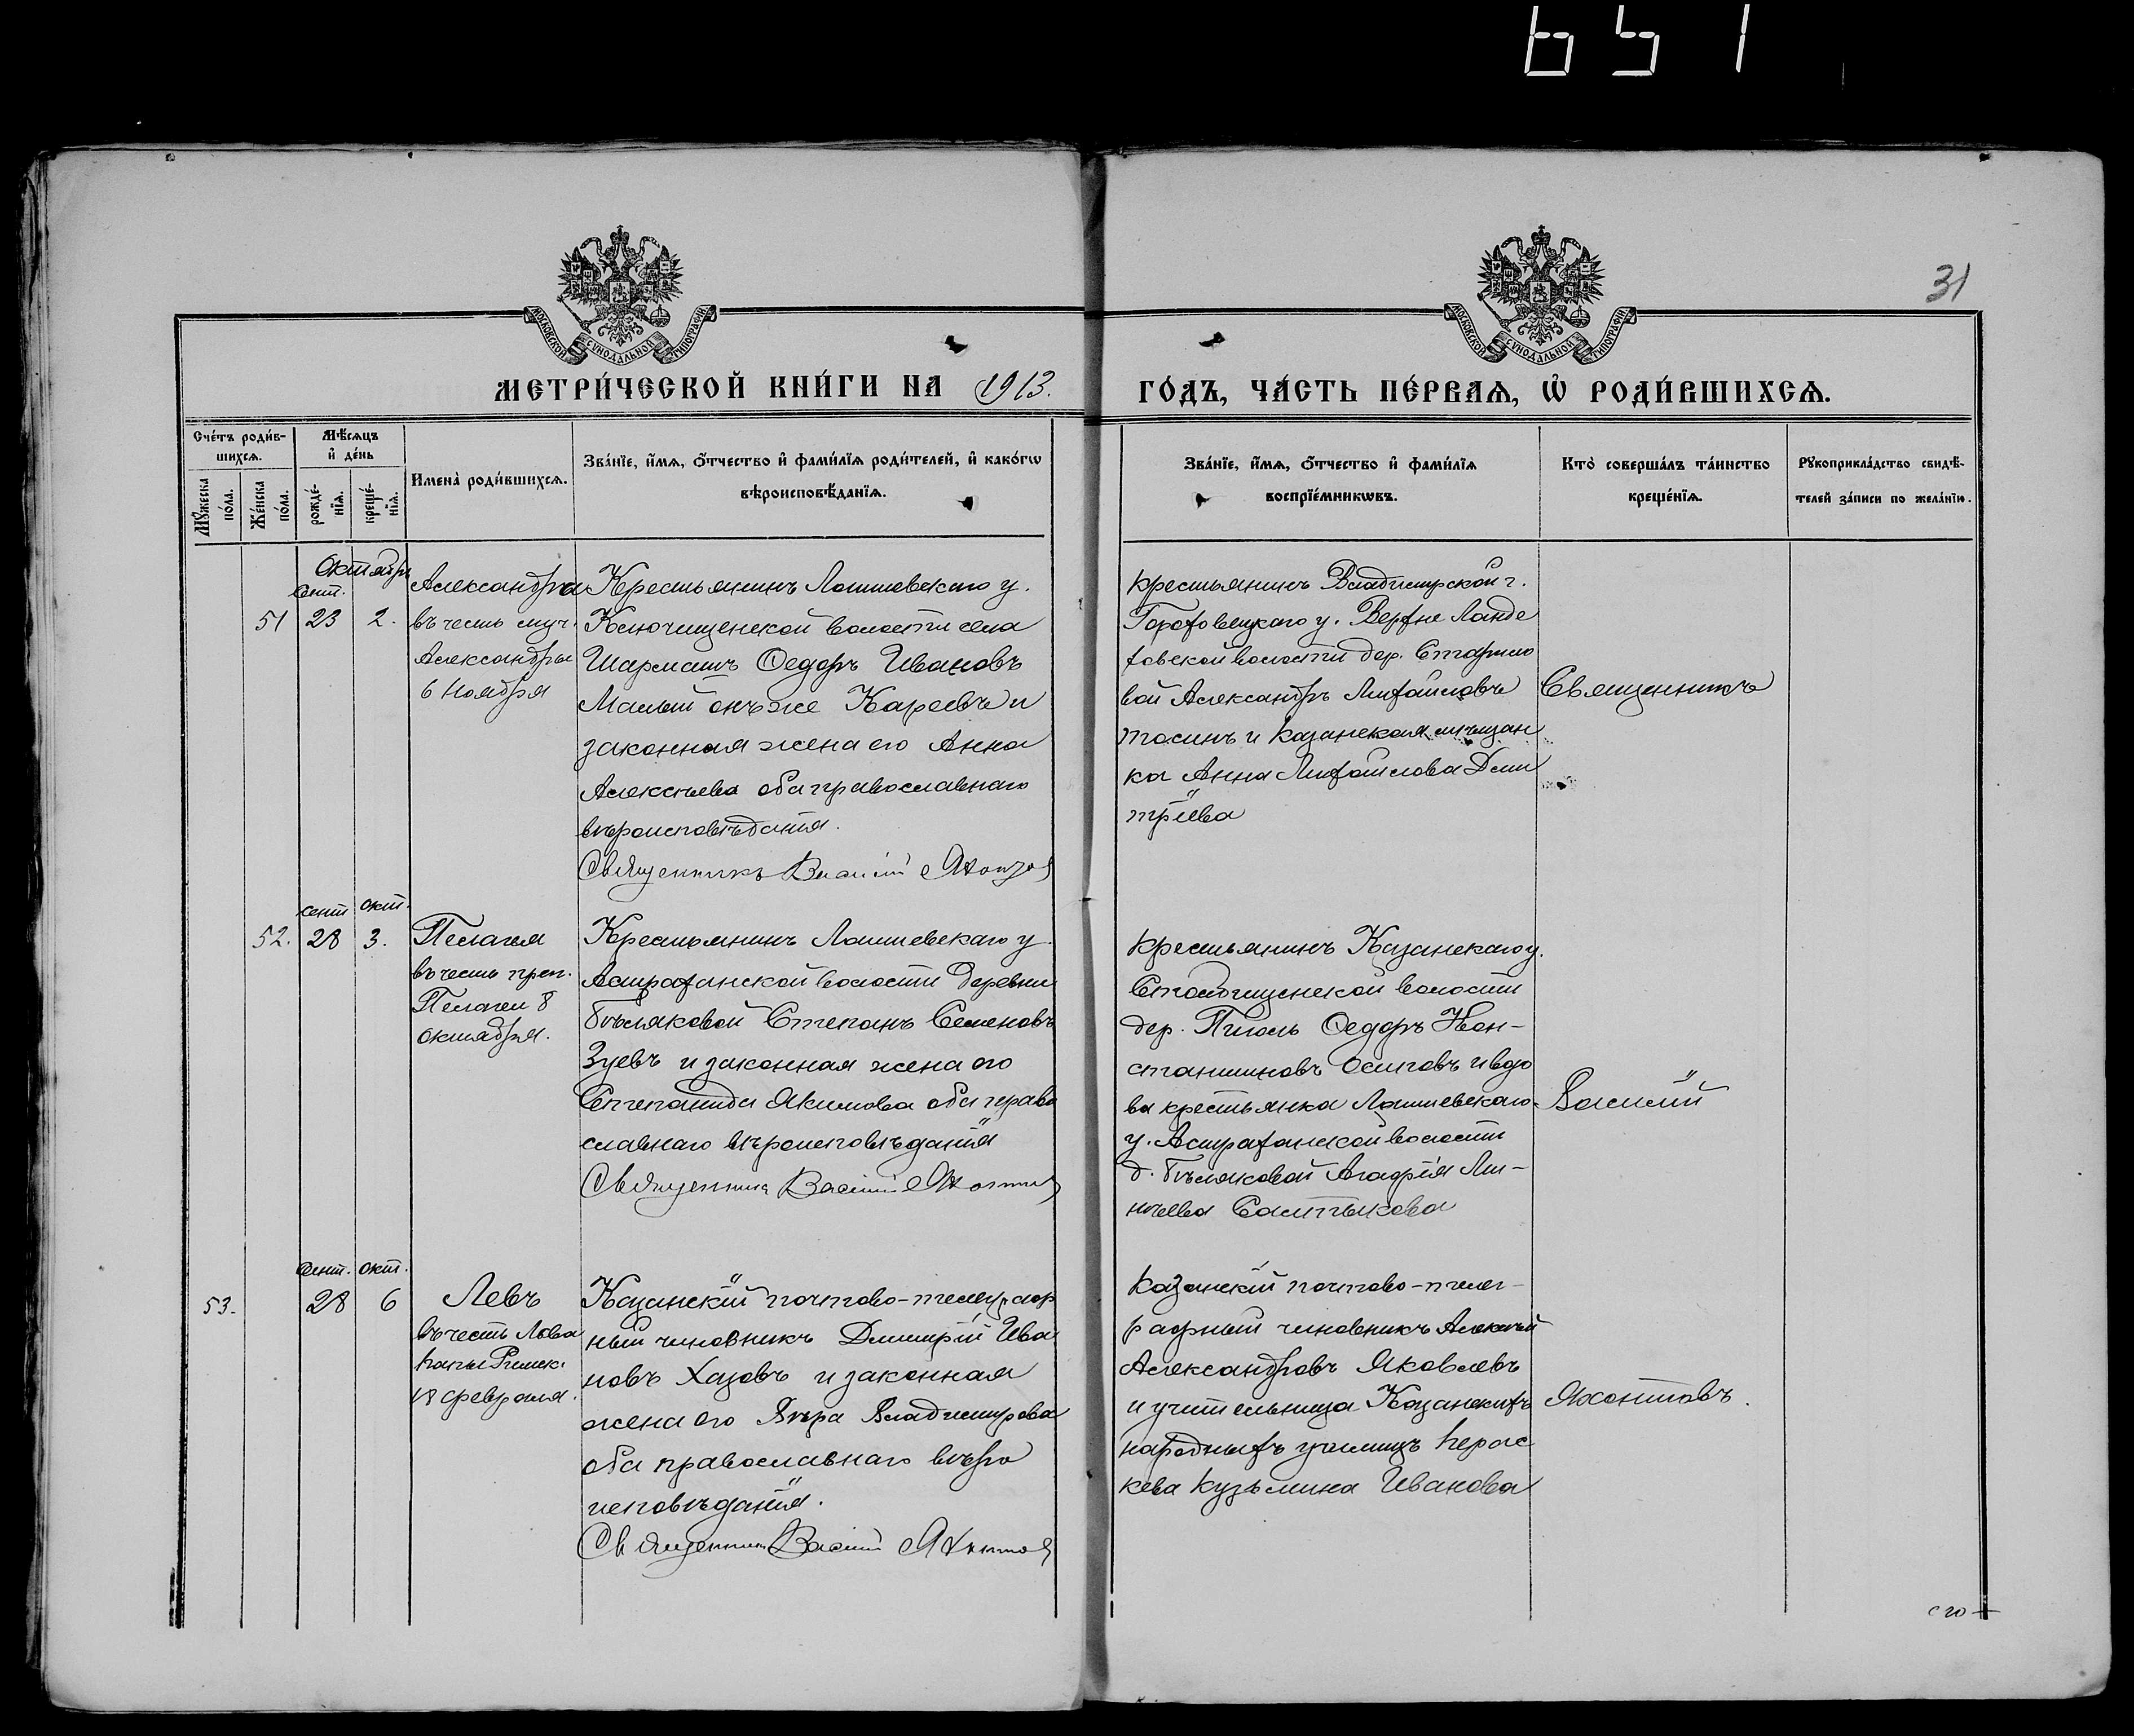 651
31
МОСКОВСКОЙ СѴНОДАЛЬНОЙ ТИПОГРАФІИ
МОСКОВСКОЙ СѴНОДАЛЬНОЙ ТИПОГРАФІИ
МЕТРИ́ЧЕСКОЙ КНИ́ГИ НА 1913.
ГО́ДЪ, ЧА́СТЬ ПЕ́РВАѦ, Ѽ РОДИ́ВШИХСѦ.
Сче́тъ роди́в-
шихсѧ.
Мꙋ́жеска
по́ла.
Же́нска
по́ла.
Мѣ́сѧцъ
и҆ де́нь
рожде́-
нїѧ.
креще́-
нїѧ.
Имена̀ роди́вшихсѧ.
Зва́нїе, и҆́мѧ, ѻ҆́тчество и҆ фами́лїѧ роди́телей, и҆ како́гѡ
вѣроисповѣ́данїѧ.
Зва́нїе, и҆́мѧ, ѻ҆́тчество и҆ фами́лїѧ
воспрїе́мникѡвъ.
Кто̀ соверша́лъ та́инство
креще́нїѧ.
Рꙋкоприкла́дство свидѣ́-
телей за́писи по жела́нїю.
Октябрь
Сент.
51 23 2.
Александра
въ честь муч.
Александры
6 Ноября
Крестьянинъ Лаишевскаго у.
Ключищенской волости села
Шармашъ Ѳедоръ Ивановъ
Малый онъ же Кареевъ и
законная жена его Анна
Алексѣева оба православнаго
вѣроисповѣданія.
Священникъ Василій Яхонтов
крестьянинъ Владимірской г.
Гороховецкаго у. Верхне Ланде
ховской волости дер. Старило
вой Александръ Михайловъ
и Казанская мѣщан
ка Анна Михайлова Дми
тріева
Священникъ
сент окт.
52. 28 3.
Пелагея
въ честь преп.
Пелагеи 8
октября.
Крестьянинъ Лаишевскаго у.
Астраханской волости деревни
Бѣляковой Степанъ Семеновъ
Зуевъ и законная жена его
Степанида Якимова оба право
славнаго вѣроисповѣданія
Священникъ Василій Яхонтов
крестьянинъ Казанскаго у.
Столбищенской волости
дер. Ѳедоръ Кон-
стантиновъ Осиповъ и вдо
ва крестьянка Лаишевскаго
у. Астраханской волости
д. Бѣляковой Агафія Ми-
нѣева Салтыкова
Василій
Сент. окт.
53. 28 6
Левъ
въ честь Льва
папы Римск.
18 февраля.
Казанскій почтово-телеграф
ный чиновникъ Дмитрій Ива
новъ Хазовъ и законная
жена его Вѣра Владимірова
оба православнаго вѣро
исповѣданія.
Священникъ Василій Яхонтов
Казанскій почтово-телег-
рафный чиновникъ Алексѣй
Александровъ Яковлевъ
и учительница Казанскихъ
народныхъ училищъ Парас
кева Кузьмина Иванова
Яхонтовъ.